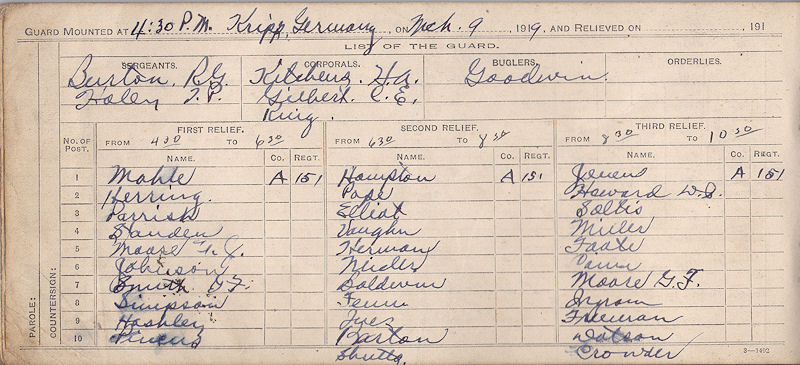 GUARD MOUNTED AT 4:30 P.M. Kripp, Germany, ON Mch. 9 1919, AND RELIEVED ON 191
LIST OF THE GUARD.
SERGEANTS. CORPORALS. BUGLERS. ORDERLIES.
Burton, R.G. Kitchens, H.A. Goodwin.
Haley J.P. Gilbert. C.E.
King.
No. of Post. FIRST RELIEF. SECOND RELIEF. THIRD RELIEF.
FROM 4 30 TO 6 30 FROM 6 30 TO 8 30 FROM 8 30 TO 10 30
NAME. Co. REGT. NAME. Co. REGT. NAME. Co. REGT.
1 Mahle A 151 Hampton A 151 A 151
2 Herring. Pope Howard W.S.
3 Parrish Elliot Soltis
4 Sanden Vaughn Miller
5 Moose F.J. Herman
6 Johnson
7 Smith Baldwin Moore G.F.
8 Simpson Ingram
9 Hashley Ives Freeman
10 Barton Watson
Crowder
PAROLE:
COUNTERSIGN:
3—1492